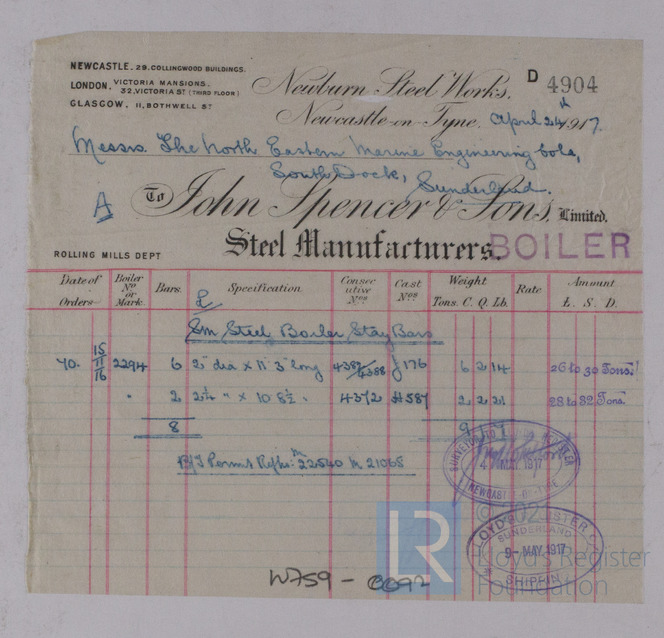 NEWCASTLE. 29. COLLINGWOOD BUILDINGS.
LONDON. VICTORIA MANSIONS.
32, VICTORIA ST (THIRD FLOOR)
GLASGOW. 11, BOTHWELL ST
Newburn Steel Works.
D 4904
Newcastle-on-Tyne, April 24th 1917.
Messrs. The North Eastern Marine Engineering Co Ld,
South Dock, Sunderland.
A
To John Spencer & Sons, Limited.
Steel Manufacturers.
BOILER
ROLLING MILLS DEPT
Date of Orders Boiler No or Mark. Bars. Specification Consecutive Nos Cast Nos Weight Tons. C. Q. Lb. Rate Amount £. S. D.
L
Sm Steel Boiler Stay Bars
70. 15/11/16 2294 6 2" dia x 11' 3" long 4383/4388 J176 6 2 14 26 to 30 Tons.
" 2 2¼ " x 10 8½ " 4372 H587 2 2 21 28 to 32 Tons
8 9 1 7
B/T Permit Refs: M 22540 M 21065
SURVEYOR TO
4 MAY 1917
NEWCASTLE-ON-TYNE
LLOYD'S REGISTER
SUNDERLAND
9-MAY.1917
SHIPPING
W759 - 0092
LR
Lloyd's Register
Foundation